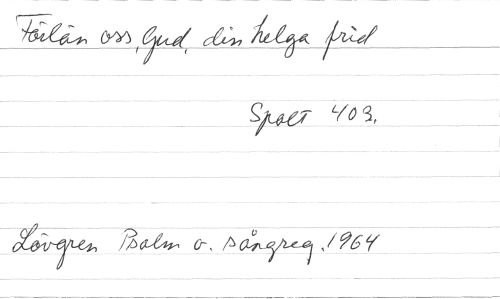 Förlän oss, Gud, din helga frid
Spalt 403.
Lövgren Psalm o. sångreg. 1964